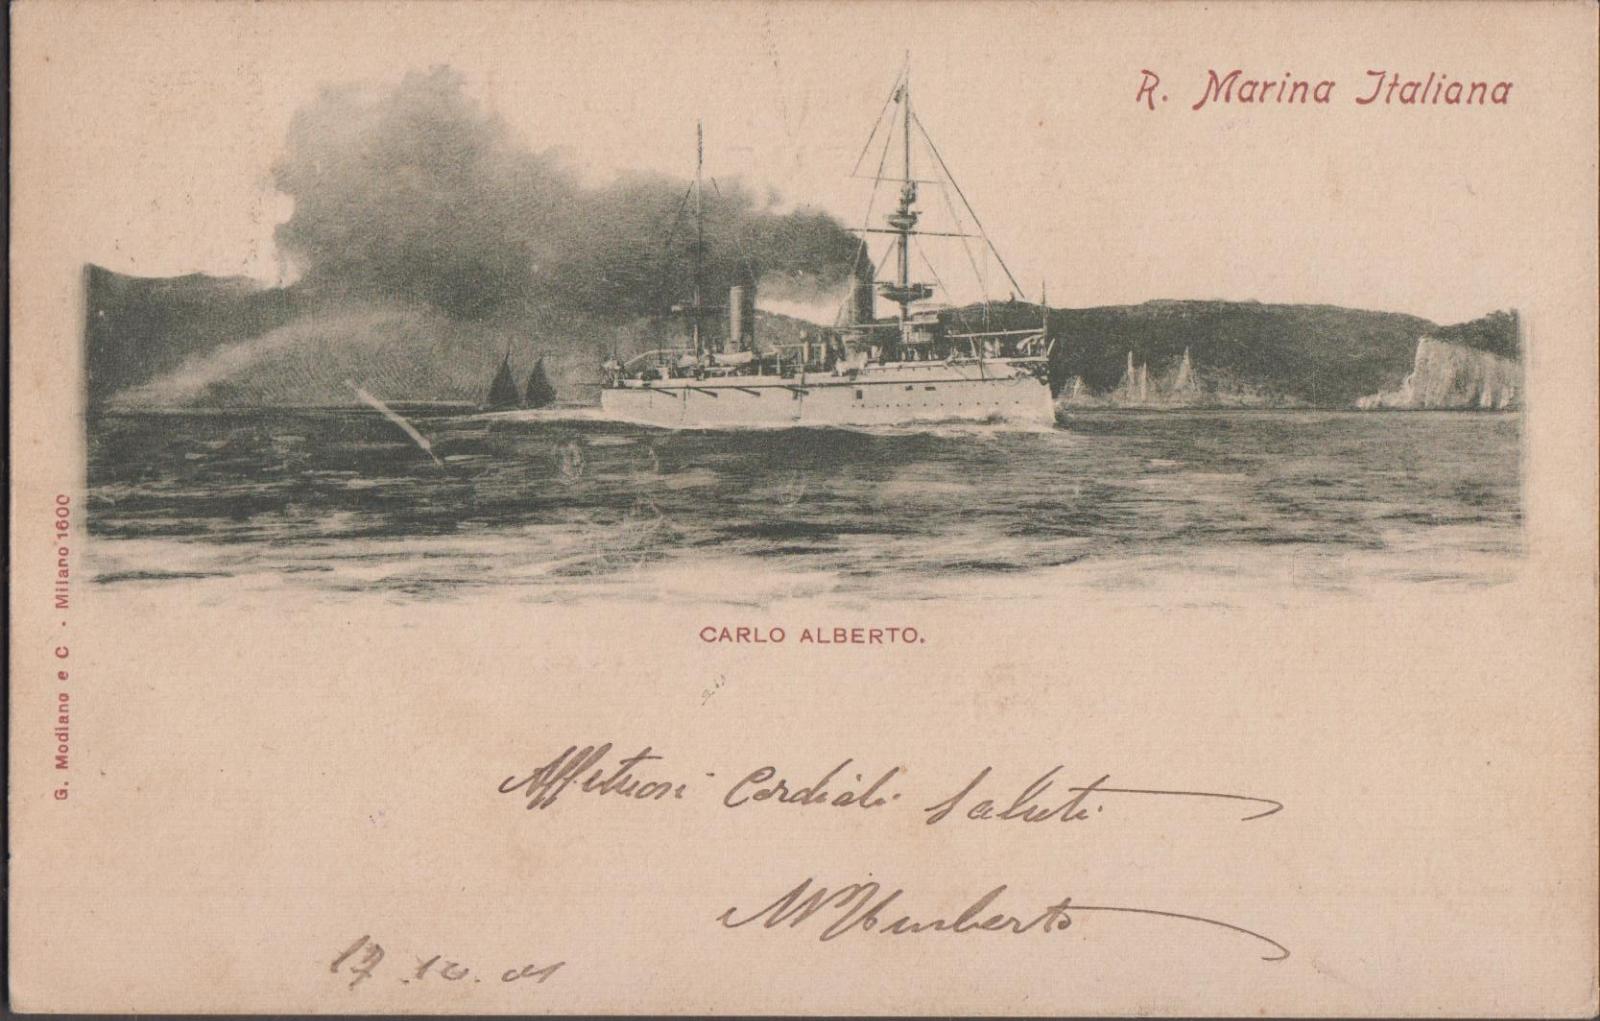 R. Marina Italiana
G. Modiano e C. - Milano 1600
CARLO ALBERTO.
Affetuosi Cordiali Saluti
Umberto
17.10.01